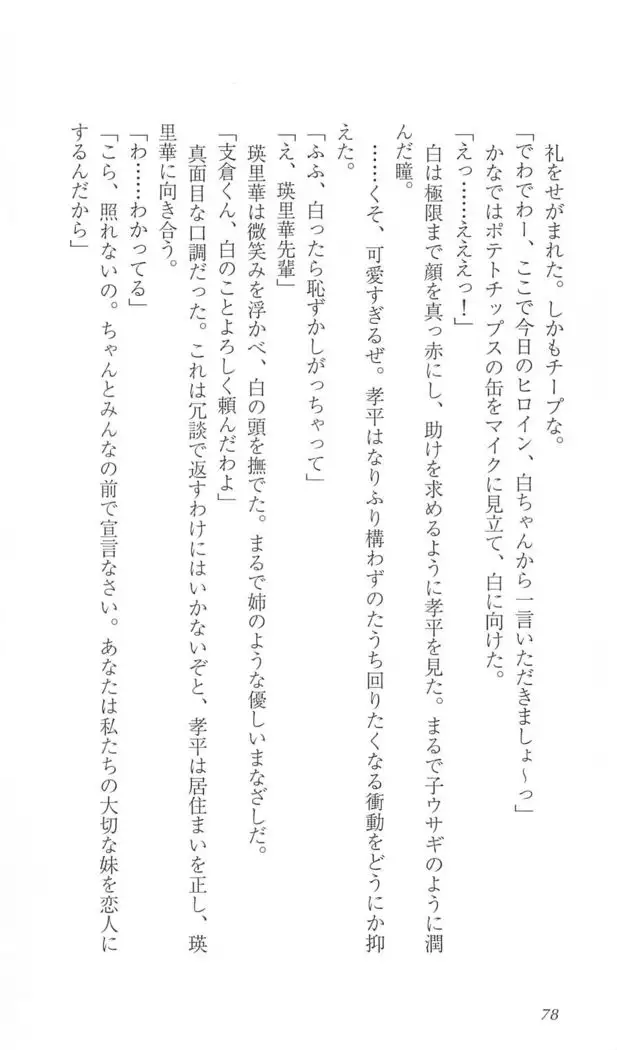 礼をせがまれた。しかもチープな。
「でわでわー、ここで今日のヒロイン、白ちゃんから一言いただきましょ～っ」
かなではポテトチップスの缶をマイクに見立て、白に向けた。
「えっ……えええっ！」
白は極限まで顔を真っ赤にし、助けを求めるように孝平を見た。まるで子ウサギのように潤
んだ瞳。
……くそ、可愛すぎるぜ。孝平はなりふり構わずのたうち回りたくなる衝動をどうにか抑
えた。
「ふふ、白ったら恥ずかしがっちゃって」
「え、瑛里華先輩」
瑛里華は微笑みを浮かべ、白の頭を撫でた。まるで姉のような優しいまなざしだ。
「支倉くん、白のことよろしく頼んだわよ」
真面目な口調だった。これは冗談で返すわけにはいかないぞと、孝平は居住まいを正し、瑛
里華に向き合う。
「わ……わかってる」
「こら、照れないの。ちゃんとみんなの前で宣言なさい。あなたは私たちの大切な妹を恋人に
するんだから」
78